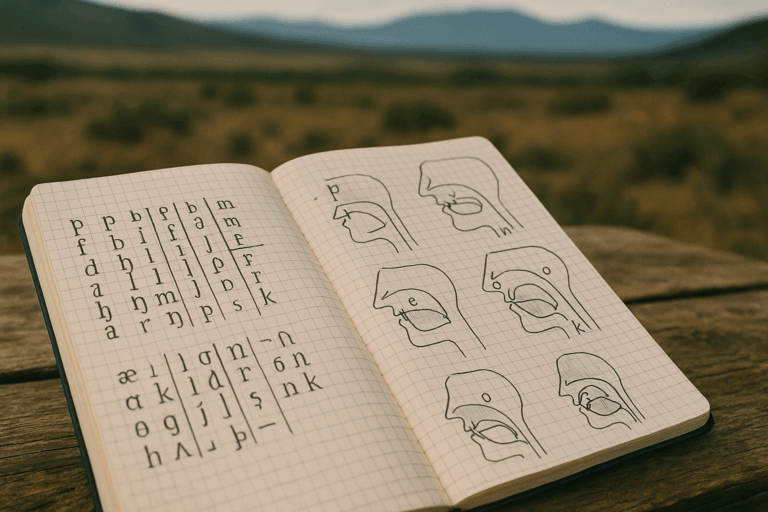 p p b b m
f b i f a m
d l i J
a l l j p r
ŋ m j ɒ r
a r ŋ p s k
æ ɪ l σ n n
ɑ k l d r 6 n
ɵ g j l ş n k
h ʌ ɹ þ –
p
n
e
o o
k
o